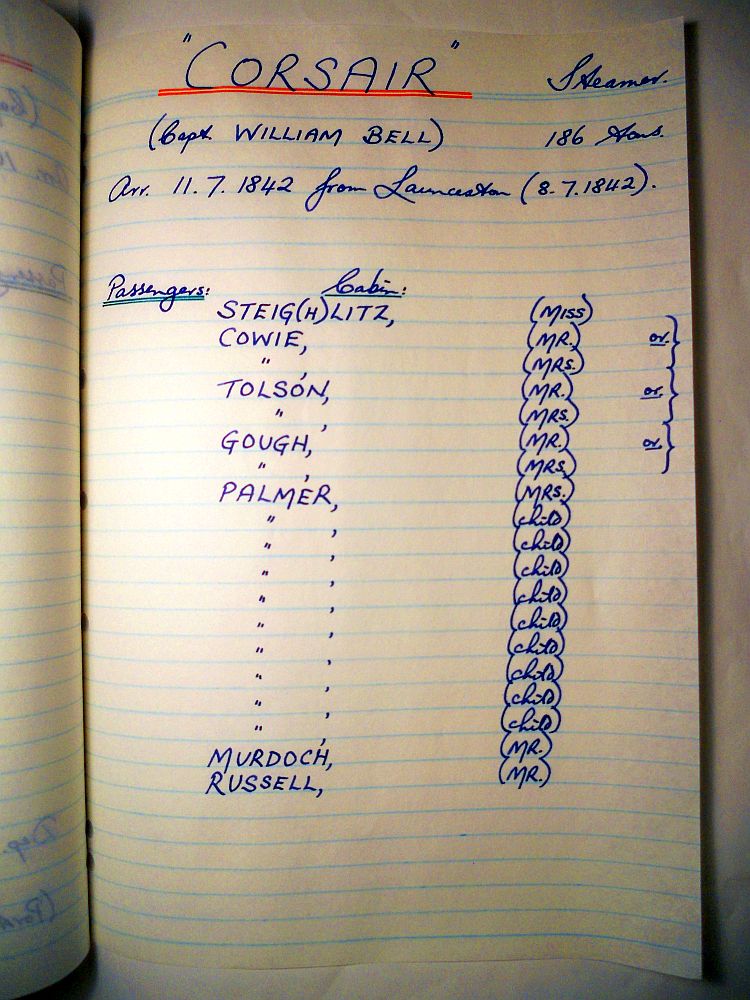 "CORSAIR" Steamer.
(Capt. WILLIAM BELL) 186 tons.
Arr. 11.7.1842 from Launceston (8.7.1842).
Passengers: Cabin:
STEIG(H)LITZ, (MISS)
COWIE, (MR.) or.
" , (MRS.)
TOLSON, (MR.) or.
" , (MRS.)
GOUGH, (MR.) or.
" , (MRS.)
PALMER, (MRS.)
" , (child)
" , (child)
" , (child)
" , (child)
" , (child)
" , (child)
" , (child)
" , (child)
" , (child)
MURDOCH, (MR.)
RUSSELL, (MR.)
Dep.